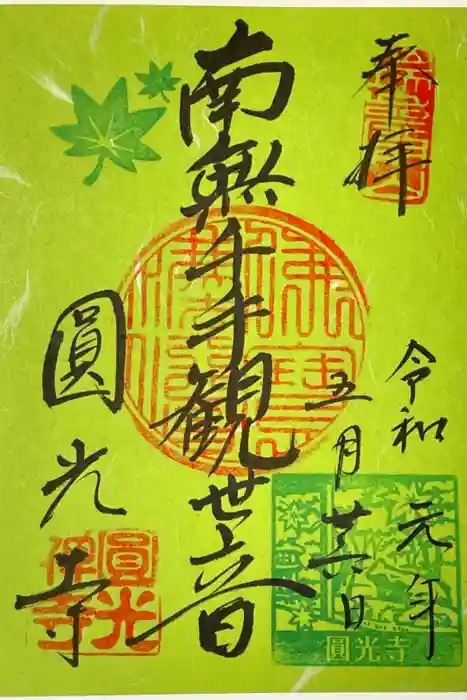 奉拝
令和元年
五月廿六日
南無千手観世音
圓光寺
圓光寺